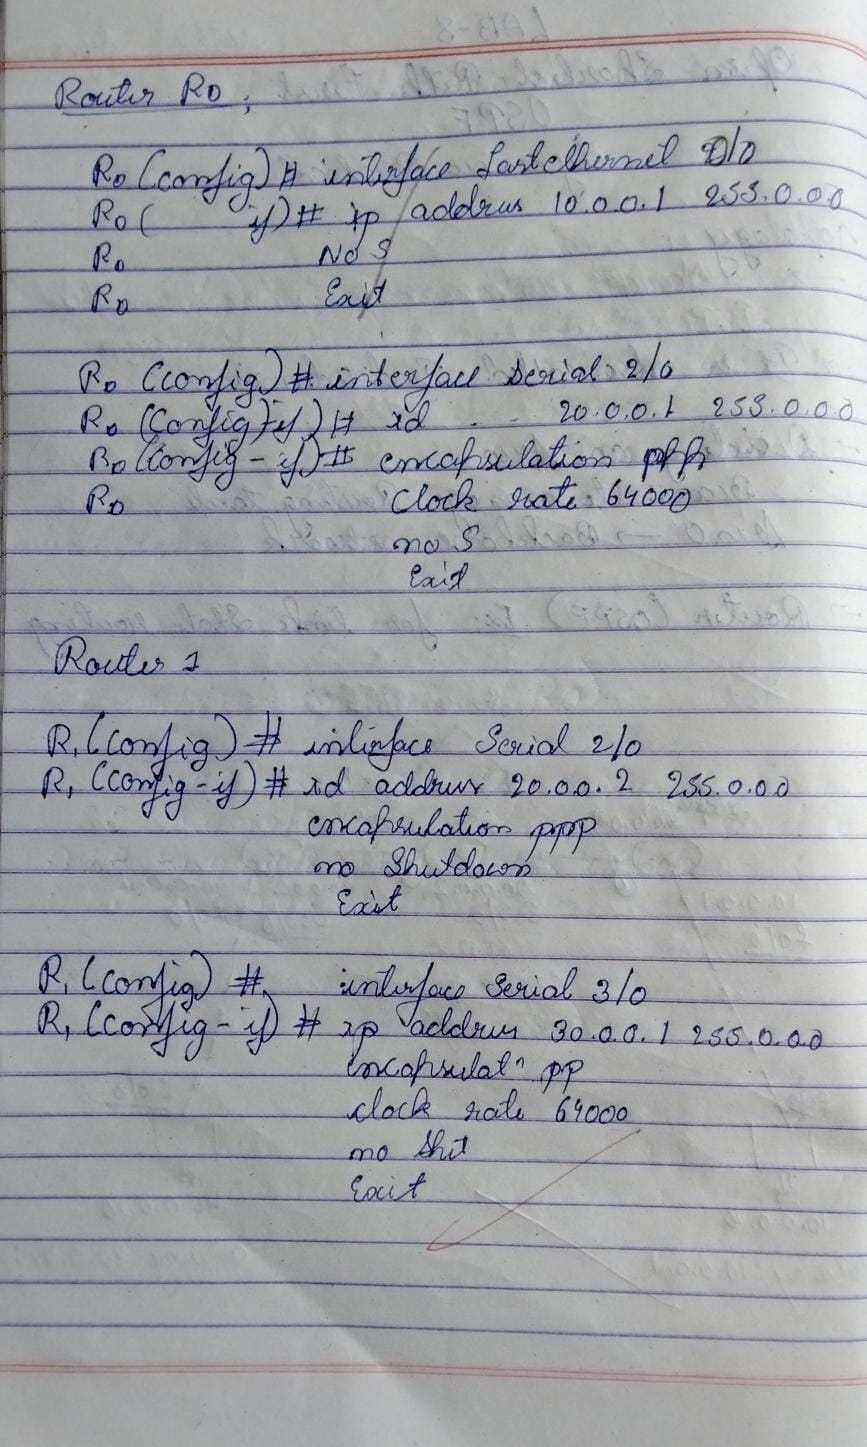 Router R0;
R0 (config) # interface fastethernet 0/0
R0 ( if) # ip address 10.0.0.1 255.0.0.0
R0 No S
R0 Exit
R0 (config) # interface serial 2/0
R0 (config-if) # id 20.0.0.1 255.0.0.0
R0 (config-if) # encapsulation ppp
R0 Clock rate 64000
no S
Exit
Router 1
R1 (config) # interface Serial 2/0
R1 (config-if) # id address 20.0.0.2 255.0.0.0
encapsulation ppp
no Shutdown
Exit
R1 (config) # interface Serial 3/0
R1 (config-if) # ip address 30.0.0.1 255.0.0.0
encapsulatn pp
clock rate 64000
no Shut
Exit